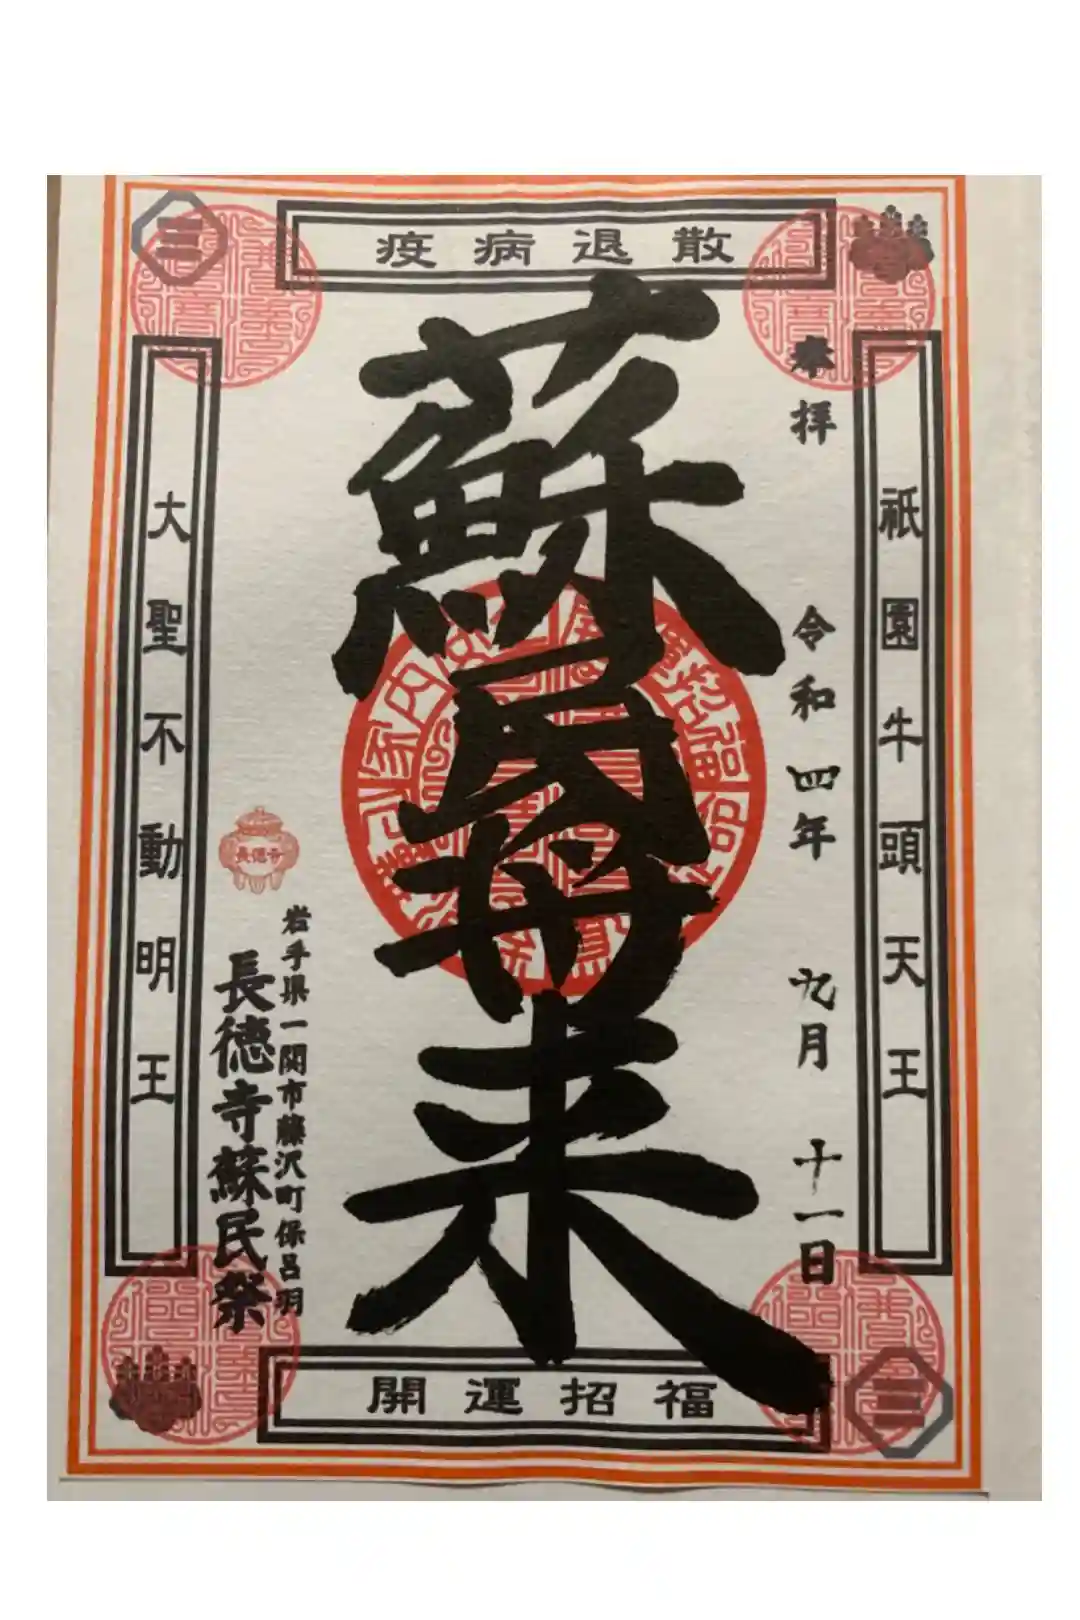 疫病退散
奉拝
令和四年 九月 十一日
祇園牛頭天王
蘇民将来
大聖不動明王
岩手県一関市藤沢町保呂羽
長徳寺蘇民祭
長德寺
開運招福